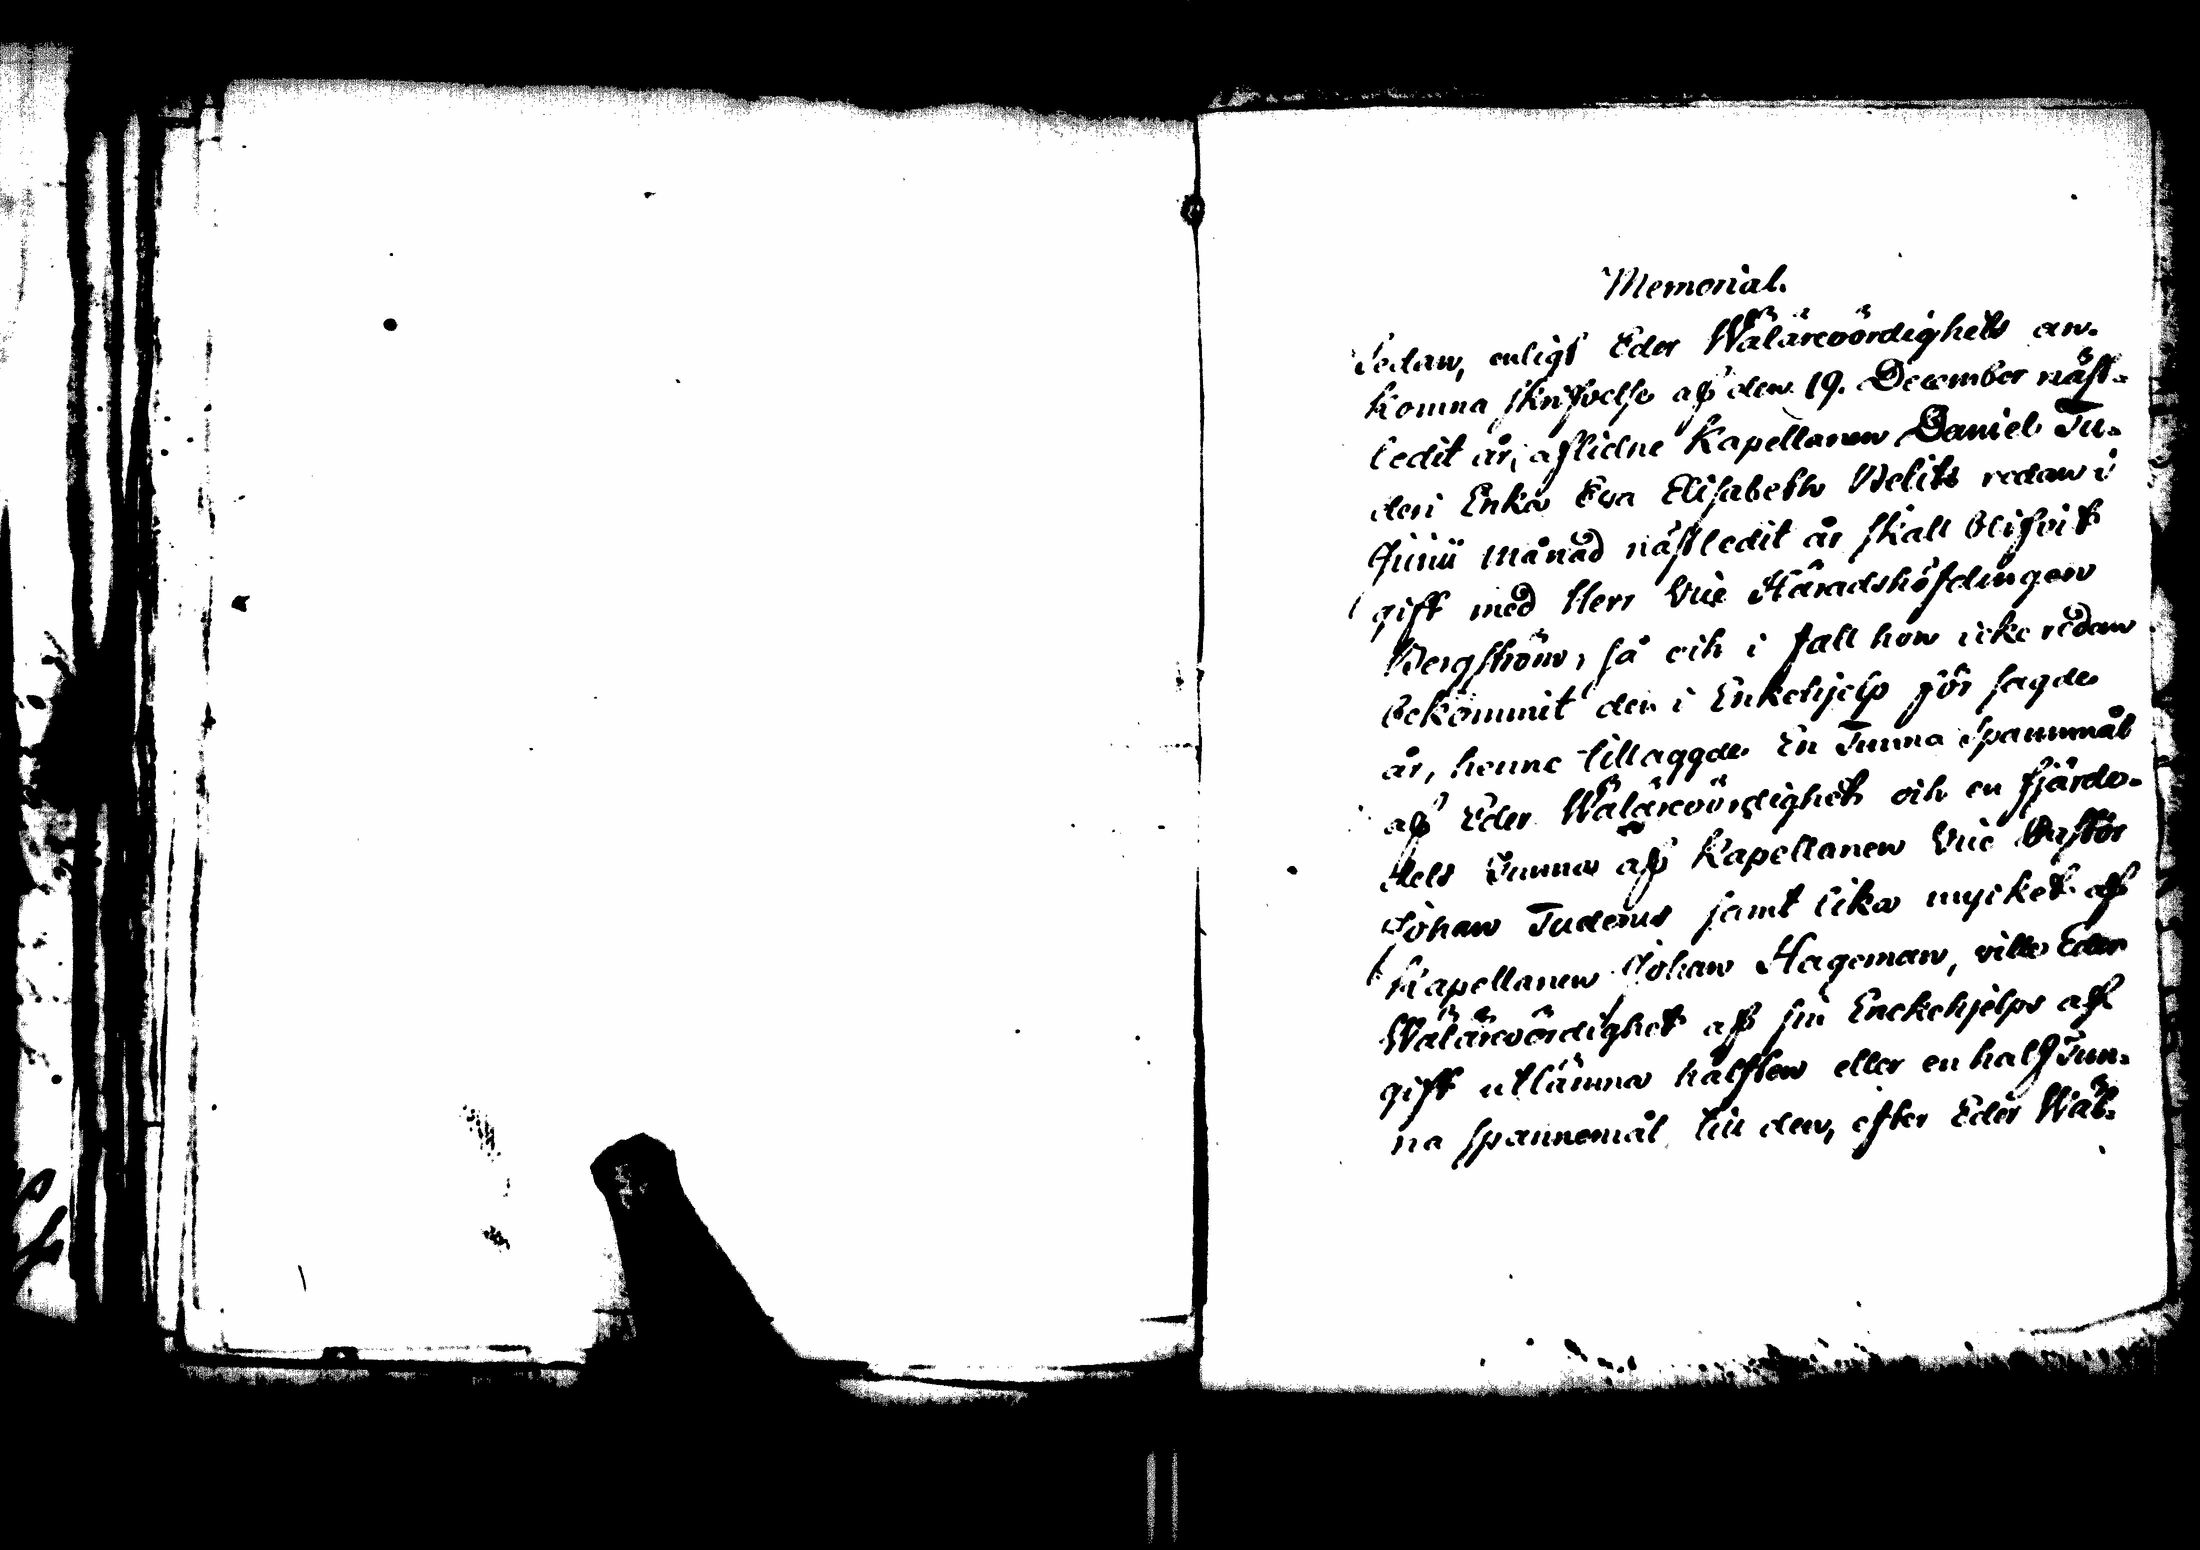 Memorial.
Sedan, enligt Eder Wälärewördighets an-
komna skrifvelse af den 19. December näst-
ledit år, aflidne Kapellanen Daniel Tu-
deri Enka Eva Elisabeth Melits redan i
Junii månad nästledit år skall blifvit
gift med Herr Vice Häradshöfdingen
Bergström, så och i fall hon icke redan
bekommit den i Enkehjelp för sagde
år, henne tillaggde En Tunna Spannmål
af Eder Wälärewördighet och en fjärde-
dels Tunna af Kapellanen Vice Pastor
Johan Tuderus samt lika mycket af
Kapellanen Johan Hageman, ville Eder
Wälärewördighet af sin Enckehjelps af
gift utlämna hälften eller en half Tun-
na spannemål till den, efter Eder Wäl-